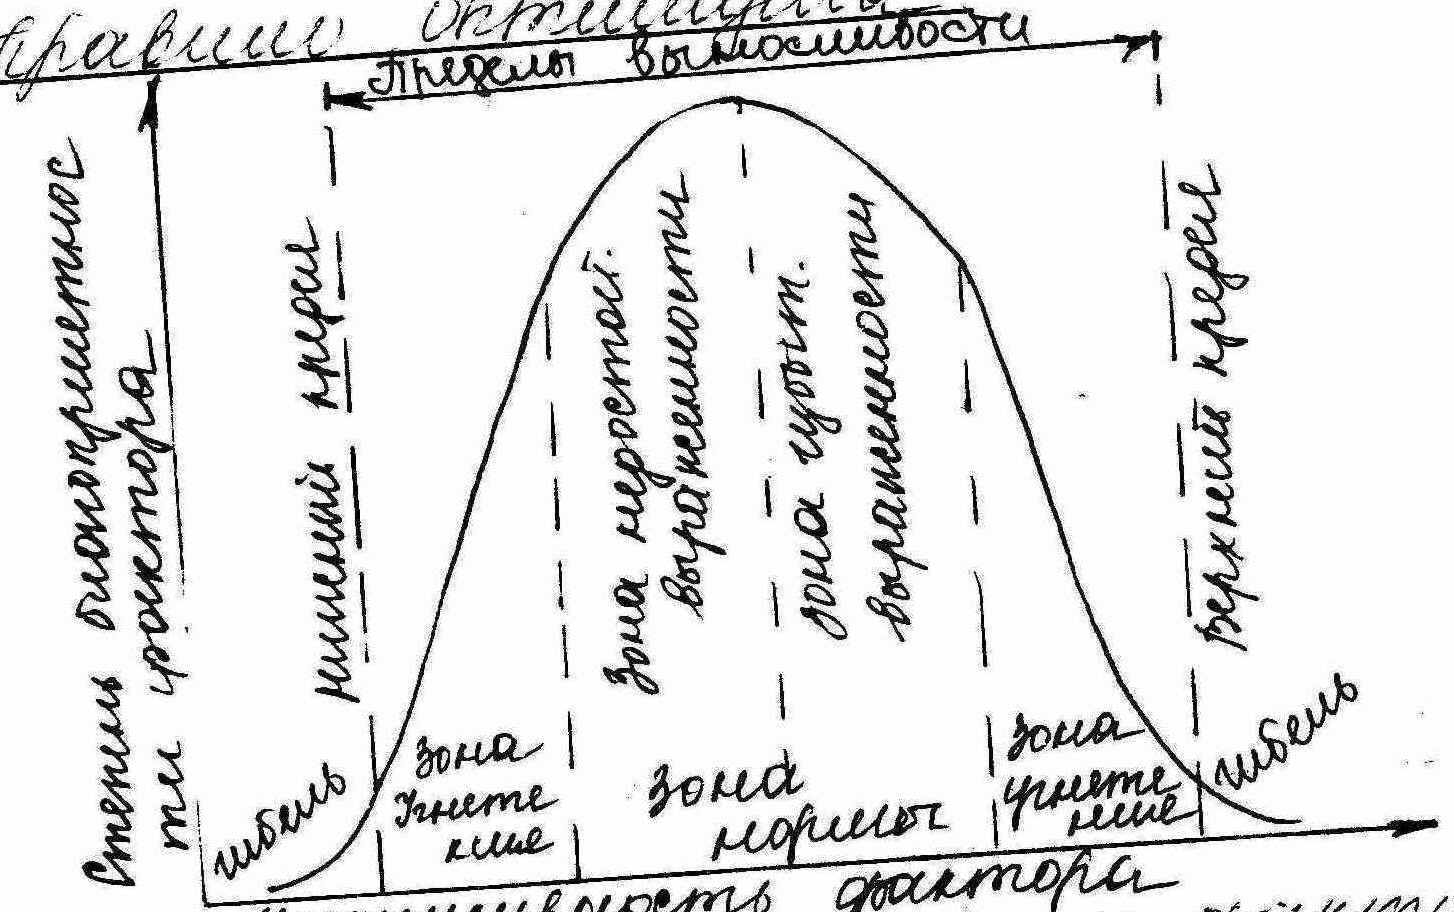 правило оптимума
Пределы выносливости
Степень благоприятнос
ти фактора
нижний предел
Зона недостой.
выраженности
зона избыт.
выраженности
Верхний предел
гибель
Зона
Угнете
ния
Зона
нормы
Зона
угнете
ния
гибель
фактора